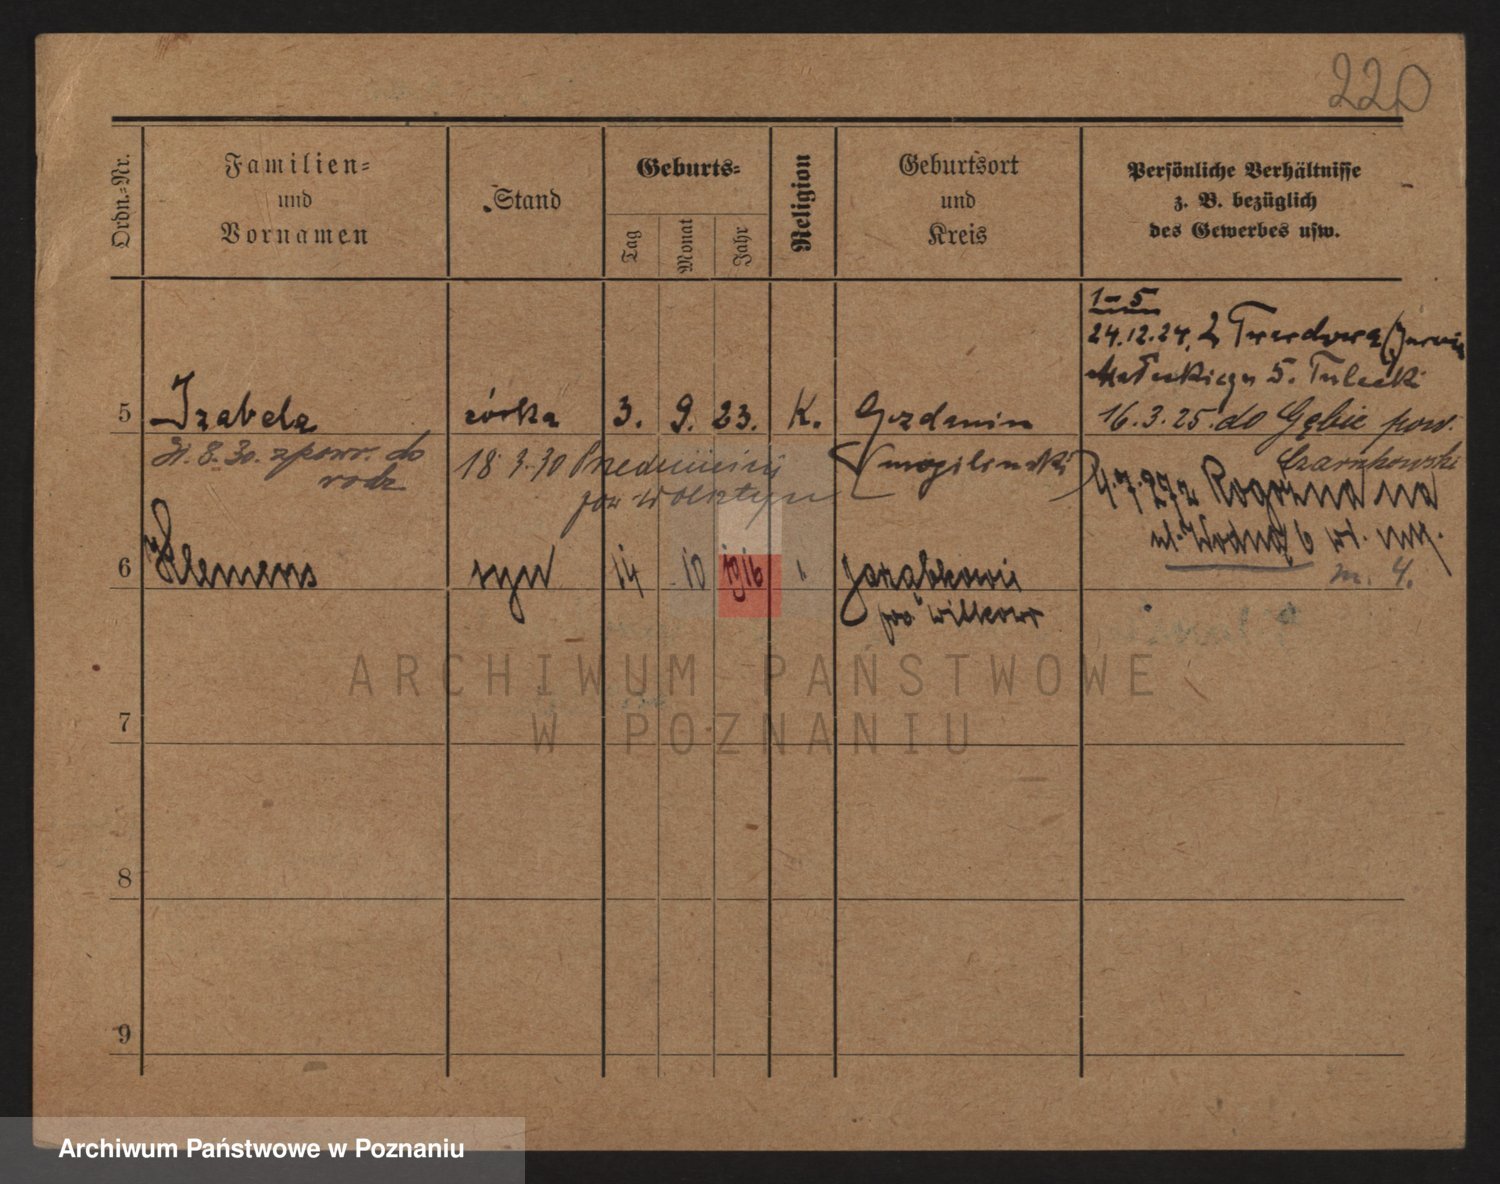 220
Ordn.-Nr.
Familien-
und
Vornamen
Stand
Geburts-
Tag
Monat
Jahr
Religion
Geburtsort
und
Kreis
Persönliche Verhältnisse
z. B. bezüglich
des Gewerbes usw.
1-5
24.12.24. z Twardowa
5.
5 Izabela córka 3. 9. 23. K. Gozdanin
16.3.25. do Gębic pow.
Czarnkowski
8.30. z powr. do
rodz
18.3.30
mogilenski
4.7.27 z Rogoźna na
ul. Wodną 6
m. 4.
6 Klemens syn 14 10 1916 Jarząbkowie
pow Witkowo
7
8
9
ARCHIWUM PAŃSTWOWE
W POZNANIU
Archiwum Państwowe w Poznaniu